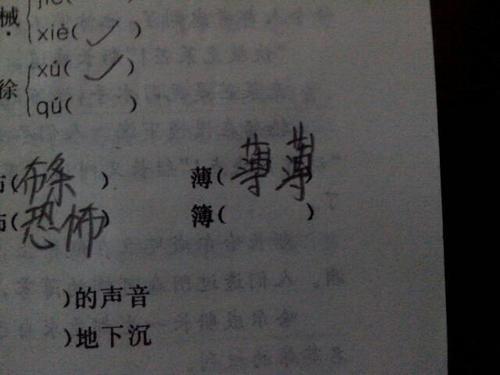 械 xiè( ✓ )
xú( ✓ )
徐
qú( )
(布条 ) 薄(薄薄 )
(恐怖) 簿( )
)的声音
)地下沉